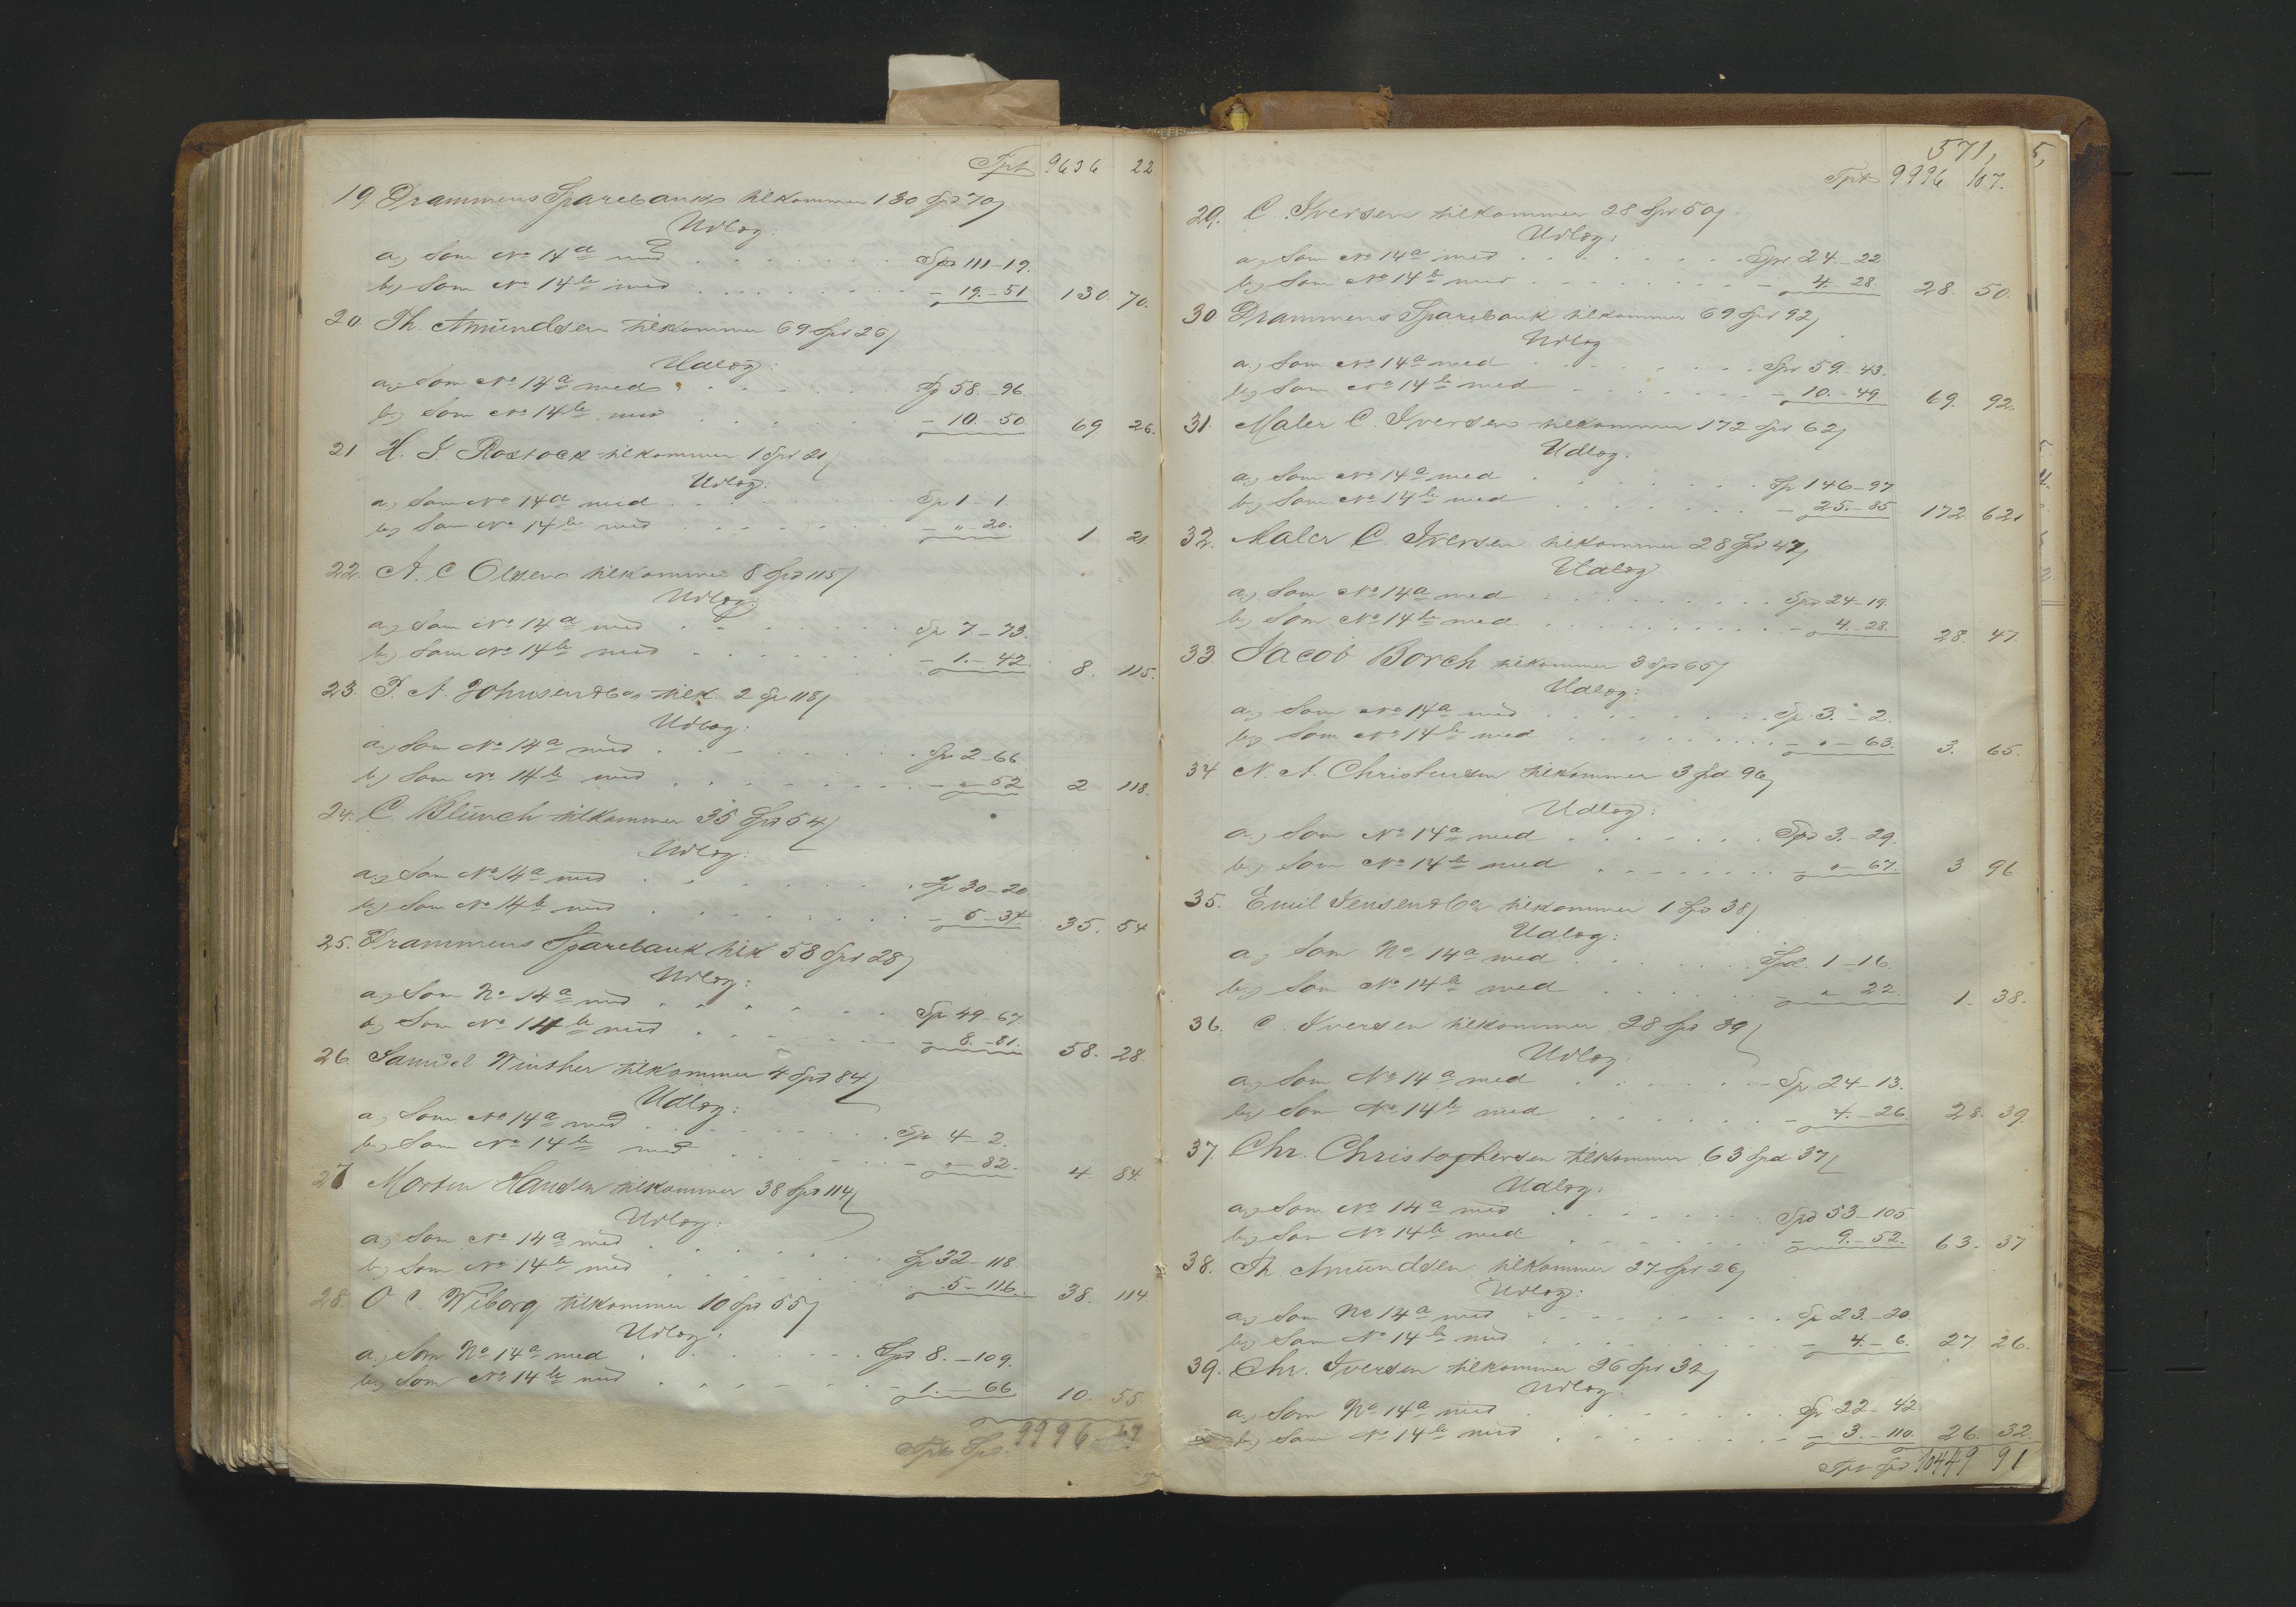 Tpt 9636 22
19 Drammens Sparebank tilkommer 130 Spd 70/
Udlæg:
a, Som No 14a med . . . . . . . Spd 111-19.
b, Som No 14b med . . . . . . . - 19.-51 130. 70.
20. Th. Amundsen tilkommer 69 Spd 26/
Udlæg:
a, Som No 14a med . . . . . . . Sp 58.-96
b, Som No 14b med . . . . . . . - 10.-50. 69. 26.
21 H. J. Rostock tilkommer 1 Spd 21/
Udlæg:
a, Som No 14a med . . . . . . . Sp 1-1.
b, Som No 14b med . . . . . . . - "-20. 1. 21
22. A. C Olsen tilkommer 8 Spd 115/
Udlæg:
a, Som No 14a med . . . . . . . Sp 7-73.
b, Som No 14b med . . . . . . . - 1.-42. 8. 115.
23. P. A. Johnsen & Co tilk. 2 Sp 118/
Udlæg:
a, Som No 14a med . . . . . . . Sp 2-66
b, Som No 14b med . . . . . . . - "-52 2 118.
24. C. Blünch tilkommer 35 Spd 54/
Udlæg:
a, Som No 14a med . . . . . . . Sp 30-20
b, Som No 14b med . . . . . . . - 5-34 35. 54
25. Drammens Sparebank tilk 58 Spd 28/
Udlæg:
a, Som No 14a med . . . . . . . Sp 49-67
b, Som No 14b med . . . . . . . - 8.-81. 58. 28.
26. Samuel Winther tilkommer 4 Spd 84/
Udlæg:
a, Som No 14a med . . . . . . . Sp 4-2.
b, Som No 14b med . . . . . . . - "-82. 4. 84.
27. Morten Hansen tilkommer 38 Spd 114/
Udlæg:
a, Som No 14a med . . . . . . . Sp 32-118
b, Som No 14b med . . . . . . . 5-116. 38. 114
28. O C. Wiborg tilkommer 10 Spd 55/
Udlæg:
a, Som No 14a med . . . . . . . Spd 8.-109.
b, Som No 14b med . . . . . . . - 1.-66. 10. 55
Tpt Spd. 9996
571,
Tpt 9996 107.
29. C. Iversen tilkommer 28 Spd 50/
Udlæg:
a, Som No 14a med . . . . . . . Spd 24.-22
b, Som No 14b med . . . . . . . - 4.-28. 28. 50.
30. Drammens Sparebank tilkommer 69 Spd 92/
Udlæg
a, Som No 14a med . . . . . . . Spd 59.-43.
b, Som No 14b med . . . . . . . - 10.-49. 69. 92.
31. Maler C. Iversen tilkommer 172 Spd 62/
Udlæg.
a, Som No 14a med . . . . . . . Sp 146-97
b, Som No 14b med . . . . . . . - 25.-85 172 62.
32. Maler C. Iversen tilkommer 28 Spd 47/
Udlæg
a, Som No 14a med . . . . . . . Spd 24-19.
b, Som No 14b med . . . . . . . - 4.-28. 28. 47.
33. Jacob Borch tilkommer 3 Sp 65/
Udlæg:
a, Som No 14a med . . . . . . . Sp. 3.-2.
b, Som No 14b med . . . . . . . - "-63. 3. 65.
34 N. A. Christensen tilkommer 3 Spd 96/
Udlæg:
a, Som No 14a med . . . . . . . Spd 3.-29.
b, Som No 14b med . . . . . . . - "-67. 3 96
35. Emil Jensen & Co tilkommer 1 Spd 38/
Udlæg:
a, Som No 14a med . . . . . . . Spd. 1-16.
b, Som No 14b med . . . . . . . - " 22. 1. 38.
36. C. Iversen tilkommer 28 Spd 39/
Udlæg.
a, Som No 14a med . . . . . . . Sp 24-13.
b, Som No 14b med . . . . . . . - 4.-26. 28. 39.
37. Chr. Christophersen tilkommer 63 Spd 37/
Udlæg:
a, Som No 14a med . . . . . . . Spd 53-105
b, Som No 14b med . . . . . . . - 9.-52. 63. 37
38. Th. Amundsen tilkommer 27 Spd 26/
Udlæg:
a, Som No 14a med . . . . . . . Sp 23-20.
b, Som No 14b med . . . . . . . - 4-6. 27. 26.
39. Chr. Iversen tilkommer 26 Spd 32/
Udlæg.
a, Som No 14a med . . . . . . . Sp 22-42
b, Som No 14b med . . . . . . . - 3.-110. 26. 32.
Tpt Spd 10449 91